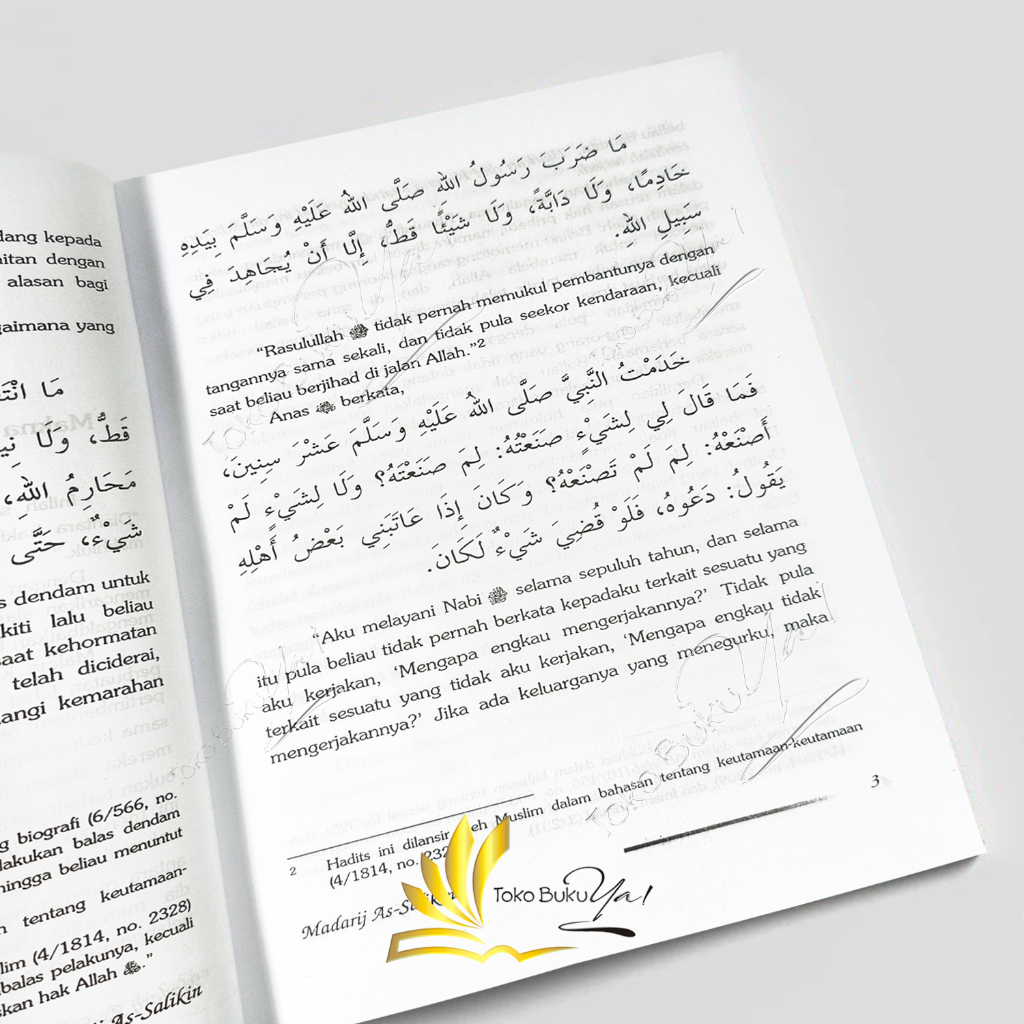 dang kepada
aitan dengan
alasan bagi
gaimana yang
مَا
قَطُّ، وَلَا
مَحَارِمُ اللهِ،
شَيْءٌ، حَتَّى
dendam untuk
kiti lalu beliau
saat kehormatan
telah diciderai,
angi kemarahan
g biografi (6/566, no.
lakukan balas dendam
hingga beliau menuntut
tentang keutamaan-
lim (4/1814, no. 2328)
balas pelakunya, kecuali
skan hak Allah ﷻ.”
As-Salikin
مَا ضَرَبَ رَسُولُ اللهِ صَلَّى اللهُ عَلَيْهِ وَسَلَّمَ بِيَدِهِ
خَادِمًا، وَلَا دَابَّةً، وَلَا شَيْئًا قَطُّ، إِلَّا أَنْ يُجَاهِدَ فِي
سَبِيلِ اللهِ.
“Rasulullah ﷺ tidak pernah memukul pembantunya dengan
tangannya sama sekali, dan tidak pula seekor kendaraan, kecuali
saat beliau berjihad di jalan Allah.”2
Anas berkata,
خَدَمْتُ النَّبِيَّ صَلَّى اللهُ عَلَيْهِ وَسَلَّمَ عَشْرَ سِنِينَ،
فَمَا قَالَ لِي لِشَيْءٍ صَنَعْتُهُ: لِمَ صَنَعْتَهُ؟ وَلَا لِشَيْءٍ لَمْ
أَصْنَعْهُ: لِمَ لَمْ تَصْنَعْهُ؟ وَكَانَ إِذَا عَاتَبَنِي بَعْضُ أَهْلِهِ
يَقُولُ: دَعُوهُ، فَلَوْ قُضِيَ شَيْءٌ لَكَانَ.
“Aku melayani Nabi ﷺ selama sepuluh tahun, dan selama
itu pula beliau tidak pernah berkata kepadaku terkait sesuatu yang
aku kerjakan, ‘Mengapa engkau mengerjakannya?’ Tidak pula
terkait sesuatu yang tidak aku kerjakan, ‘Mengapa engkau tidak
mengerjakannya?’ Jika ada keluarganya yang menegurku, maka
2 Hadits ini dilansir oleh Muslim dalam bahasan tentang keutamaan-keutamaan
(4/1814, no.
3
Madarij As-Salikin
Toko Buku Ya!